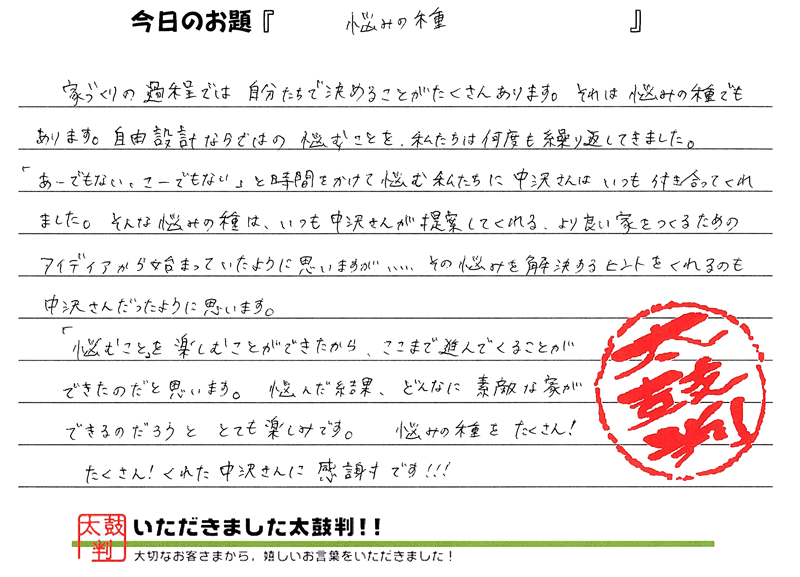 今日のお題『 悩みの種 』
家づくりの過程では自分たちで決めることがたくさんあります。それは悩みの種でも
あります。自由設計ならではの悩むことを、私たちは何度も繰り返してきました。
「あーでもない、こーでもない」と時間をかけて悩む私たちに中沢さんはいつも付き合ってくれ
ました。そんな悩みの種は、いつも中沢さんが提案してくれる、より良い家をつくるための
アイディアから始まっていたように思いますが……その悩みを解決するヒントをくれるのも
中沢さんだったように思います。
「悩むこと」を楽しむことができたから、ここまで進んでくることが
できたのだと思います。悩んだ結果、どんなに素敵な家が
できるのだろうととても楽しみです。悩みの種をたくさん!
たくさん!くれた中沢さんに感謝です!!!
太鼓判
太鼓判
いただきました太鼓判!!
大切なお客さまから、嬉しいお言葉をいただきました!